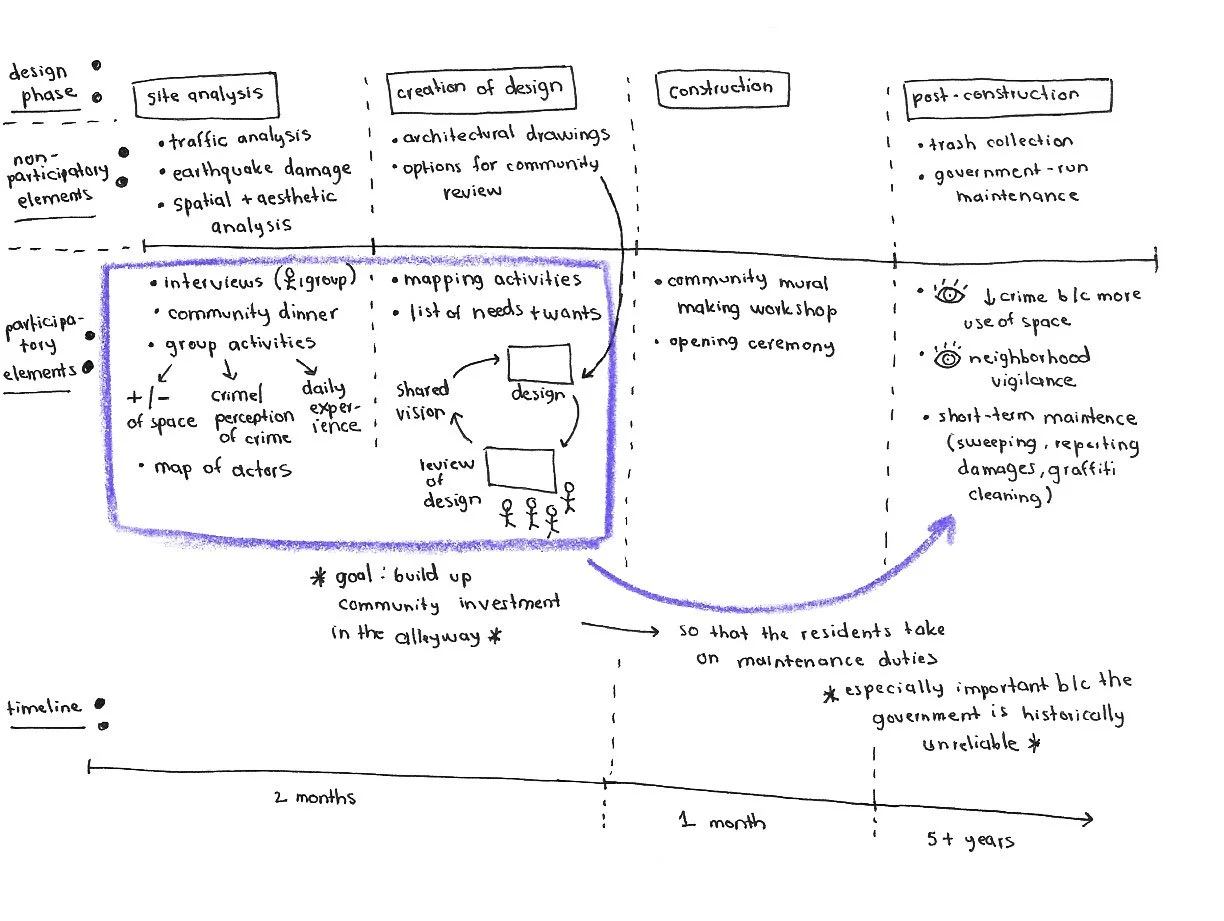 design
phase :
site analysis
creation of design
construction
post-construction
non-
participatory
elements :
• traffic analysis
• earthquake damage
• spatial + aesthetic
analysis
• architectural drawings
• options for community
review
• trash collection
• government-run
maintenance
participa-
tory
elements :
• interviews ( group)
• community dinner
• group activities
+/-
of space
crime/
perception
of crime
daily
exper-
ience
• map of actors
• mapping activities
• list of needs + wants
shared
vision
design
review
of
design
• community mural
making workshop
• opening ceremony
• ↓ crime b/c more
use of space
• neighborhood
vigilance
• short-term maintence
(sweeping, reporting
damages, graffiti
cleaning)
* goal: build up
community investment
in the alleyway *
so that the residents take
on maintenance duties
* especially important b/c the
government is historically
unreliable *
timeline :
2 months
1 month
5+ years